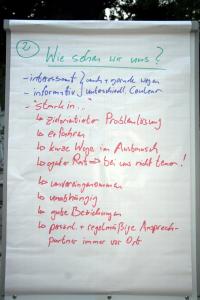 2) Wie sehen wir uns?
- interessant } auch + gerade wegen
- informativ } unterschiedl. Couleur
- "stark in...
↳ zielorientierter Problemlösung
↳ erfahren
↳ kurze Wege im Austausch
↳ guter Rat → bei uns nicht teuer!
↳ unvoreingenommen
↳ unabhängig
↳ gute Beziehungen
↳ persönl. + regelmäßige Ansprech-
partner immer vor Ort